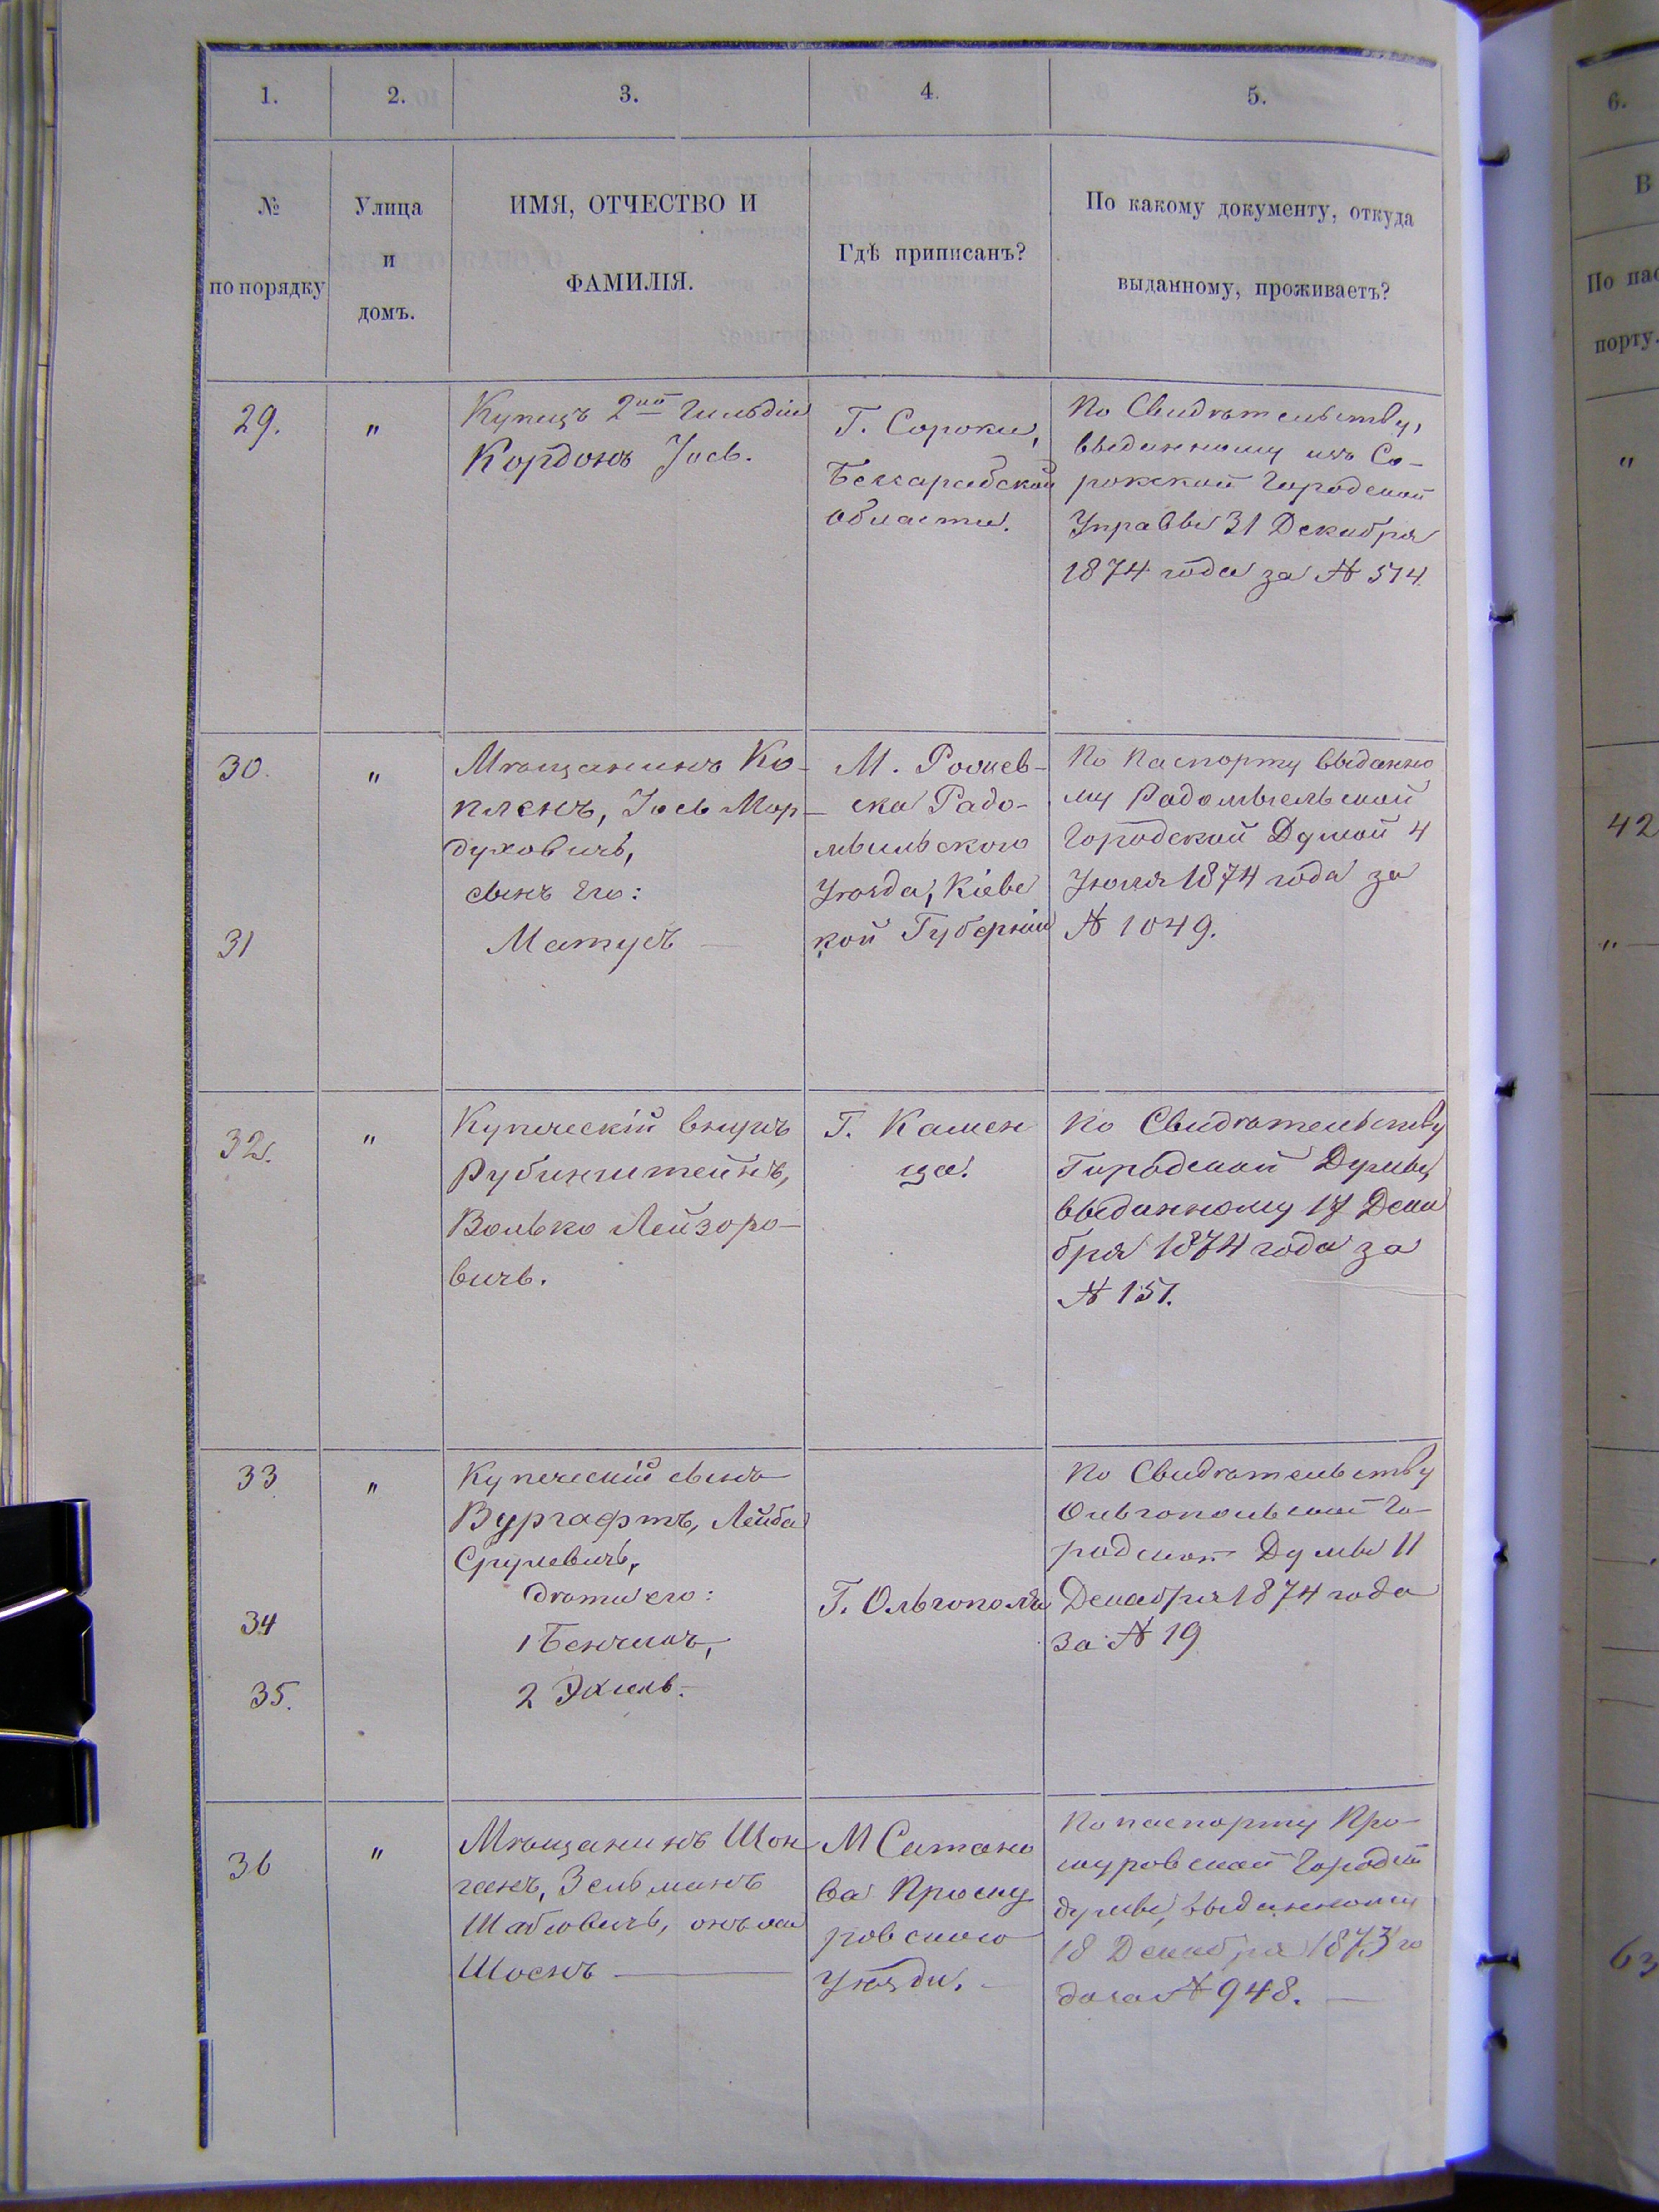 1.
2.
3.
4.
5.
№
по порядку
Улица
и
домъ.
ИМЯ, ОТЧЕСТВО И
ФАМИЛІЯ.
Гдѣ приписанъ?
По какому документу, откуда
выданному, проживаетъ?
29.
"
Купецъ 2ой Гильдіи
Кордонъ Іось.
Г. Сороки,
Бессарабской
Области.
По Свидѣтельству,
выданному изъ Со-
рокской Городской
Управы 31 Декабря
1874 года за № 514.
30.
"
Мѣщанинъ Ко-
пленъ, Іось Мор-
духовичъ,
сынъ Его:
31
Матусъ
М.
ска Радо-
мыльскаго
Уѣзда, Кіевс
кой Губерніи
По Паспорту выданно
му Радомысльской
Городской Думой 4
Іюля 1874 года за
№ 1049.
32.
"
Купеческій внукъ
Рубинштейнъ,
Волько Лейзоро-
вичъ.
Г. Камен
ца.
По Свидѣтельству
Городской Думы,
выданному 17 Дека
бря 1874 года за
№ 151.
33
"
Купеческій сынъ
Вургафтъ, Лейба
Срулевичъ,
дѣти его:
34
1 Бенчинъ,
35.
2 Эхиль.
Г. Ольгополя
По Свидѣтельству
Ольгопольской Го-
родской Думы 11
Декабря 1874 года
за № 19
36
"
Мѣщанинъ Шон
ганъ, Зельманъ
Шабсовичъ, онъ же
Шоенъ
М Сатано
ва Проску
ровскаго
Уѣзда.
По паспорту Про-
скуровской Городской
думы, выданному
18 Декабря 1873 го
да за № 948.
6.
В
По пас
порту.
"
42
"
63